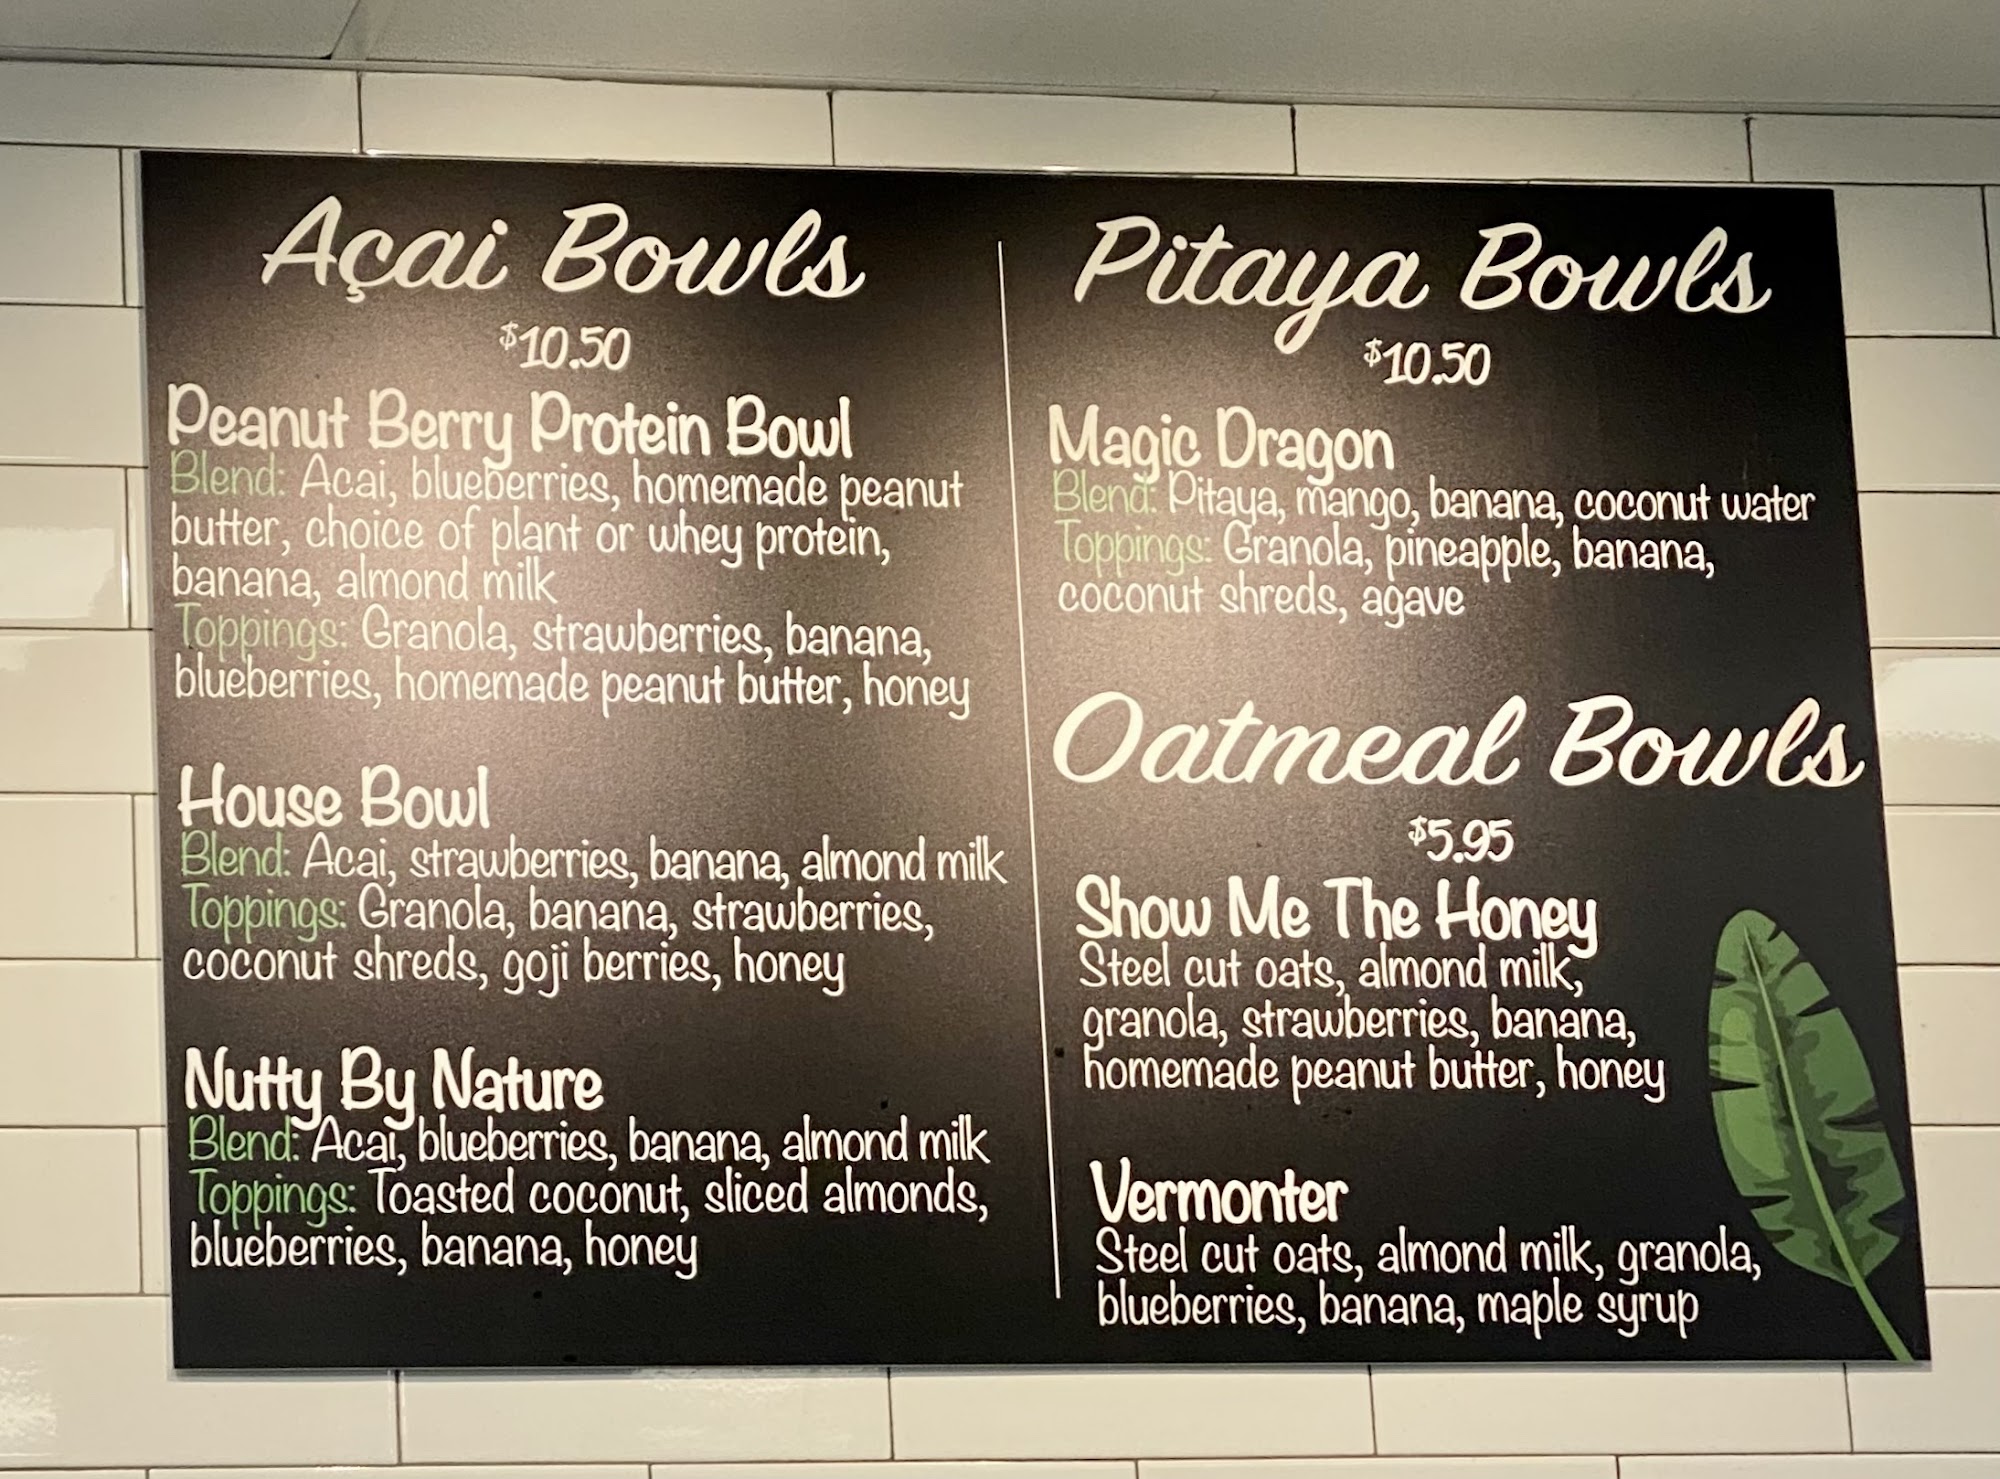 Açai Bowls
$10.50
Peanut Berry Protein Bowl
Blend: Acai, blueberries, homemade peanut
butter, choice of plant or whey protein,
banana, almond milk
Toppings: Granola, strawberries, banana,
blueberries, homemade peanut butter, honey
House Bowl
Blend: Acai, strawberries, banana, almond milk
Toppings: Granola, banana, strawberries,
coconut shreds, goji berries, honey
Nutty By Nature
Blend: Acai, blueberries, banana, almond milk
Toppings: Toasted coconut, sliced almonds,
blueberries, banana, honey
Pitaya Bowls
$10.50
Magic Dragon
Blend: Pitaya, mango, banana, coconut water
Toppings: Granola, pineapple, banana,
coconut shreds, agave
Oatmeal Bowls
$5.95
Show Me The Honey
Steel cut oats, almond milk,
granola, strawberries, banana,
homemade peanut butter, honey
Vermonter
Steel cut oats, almond milk, granola,
blueberries, banana, maple syrup